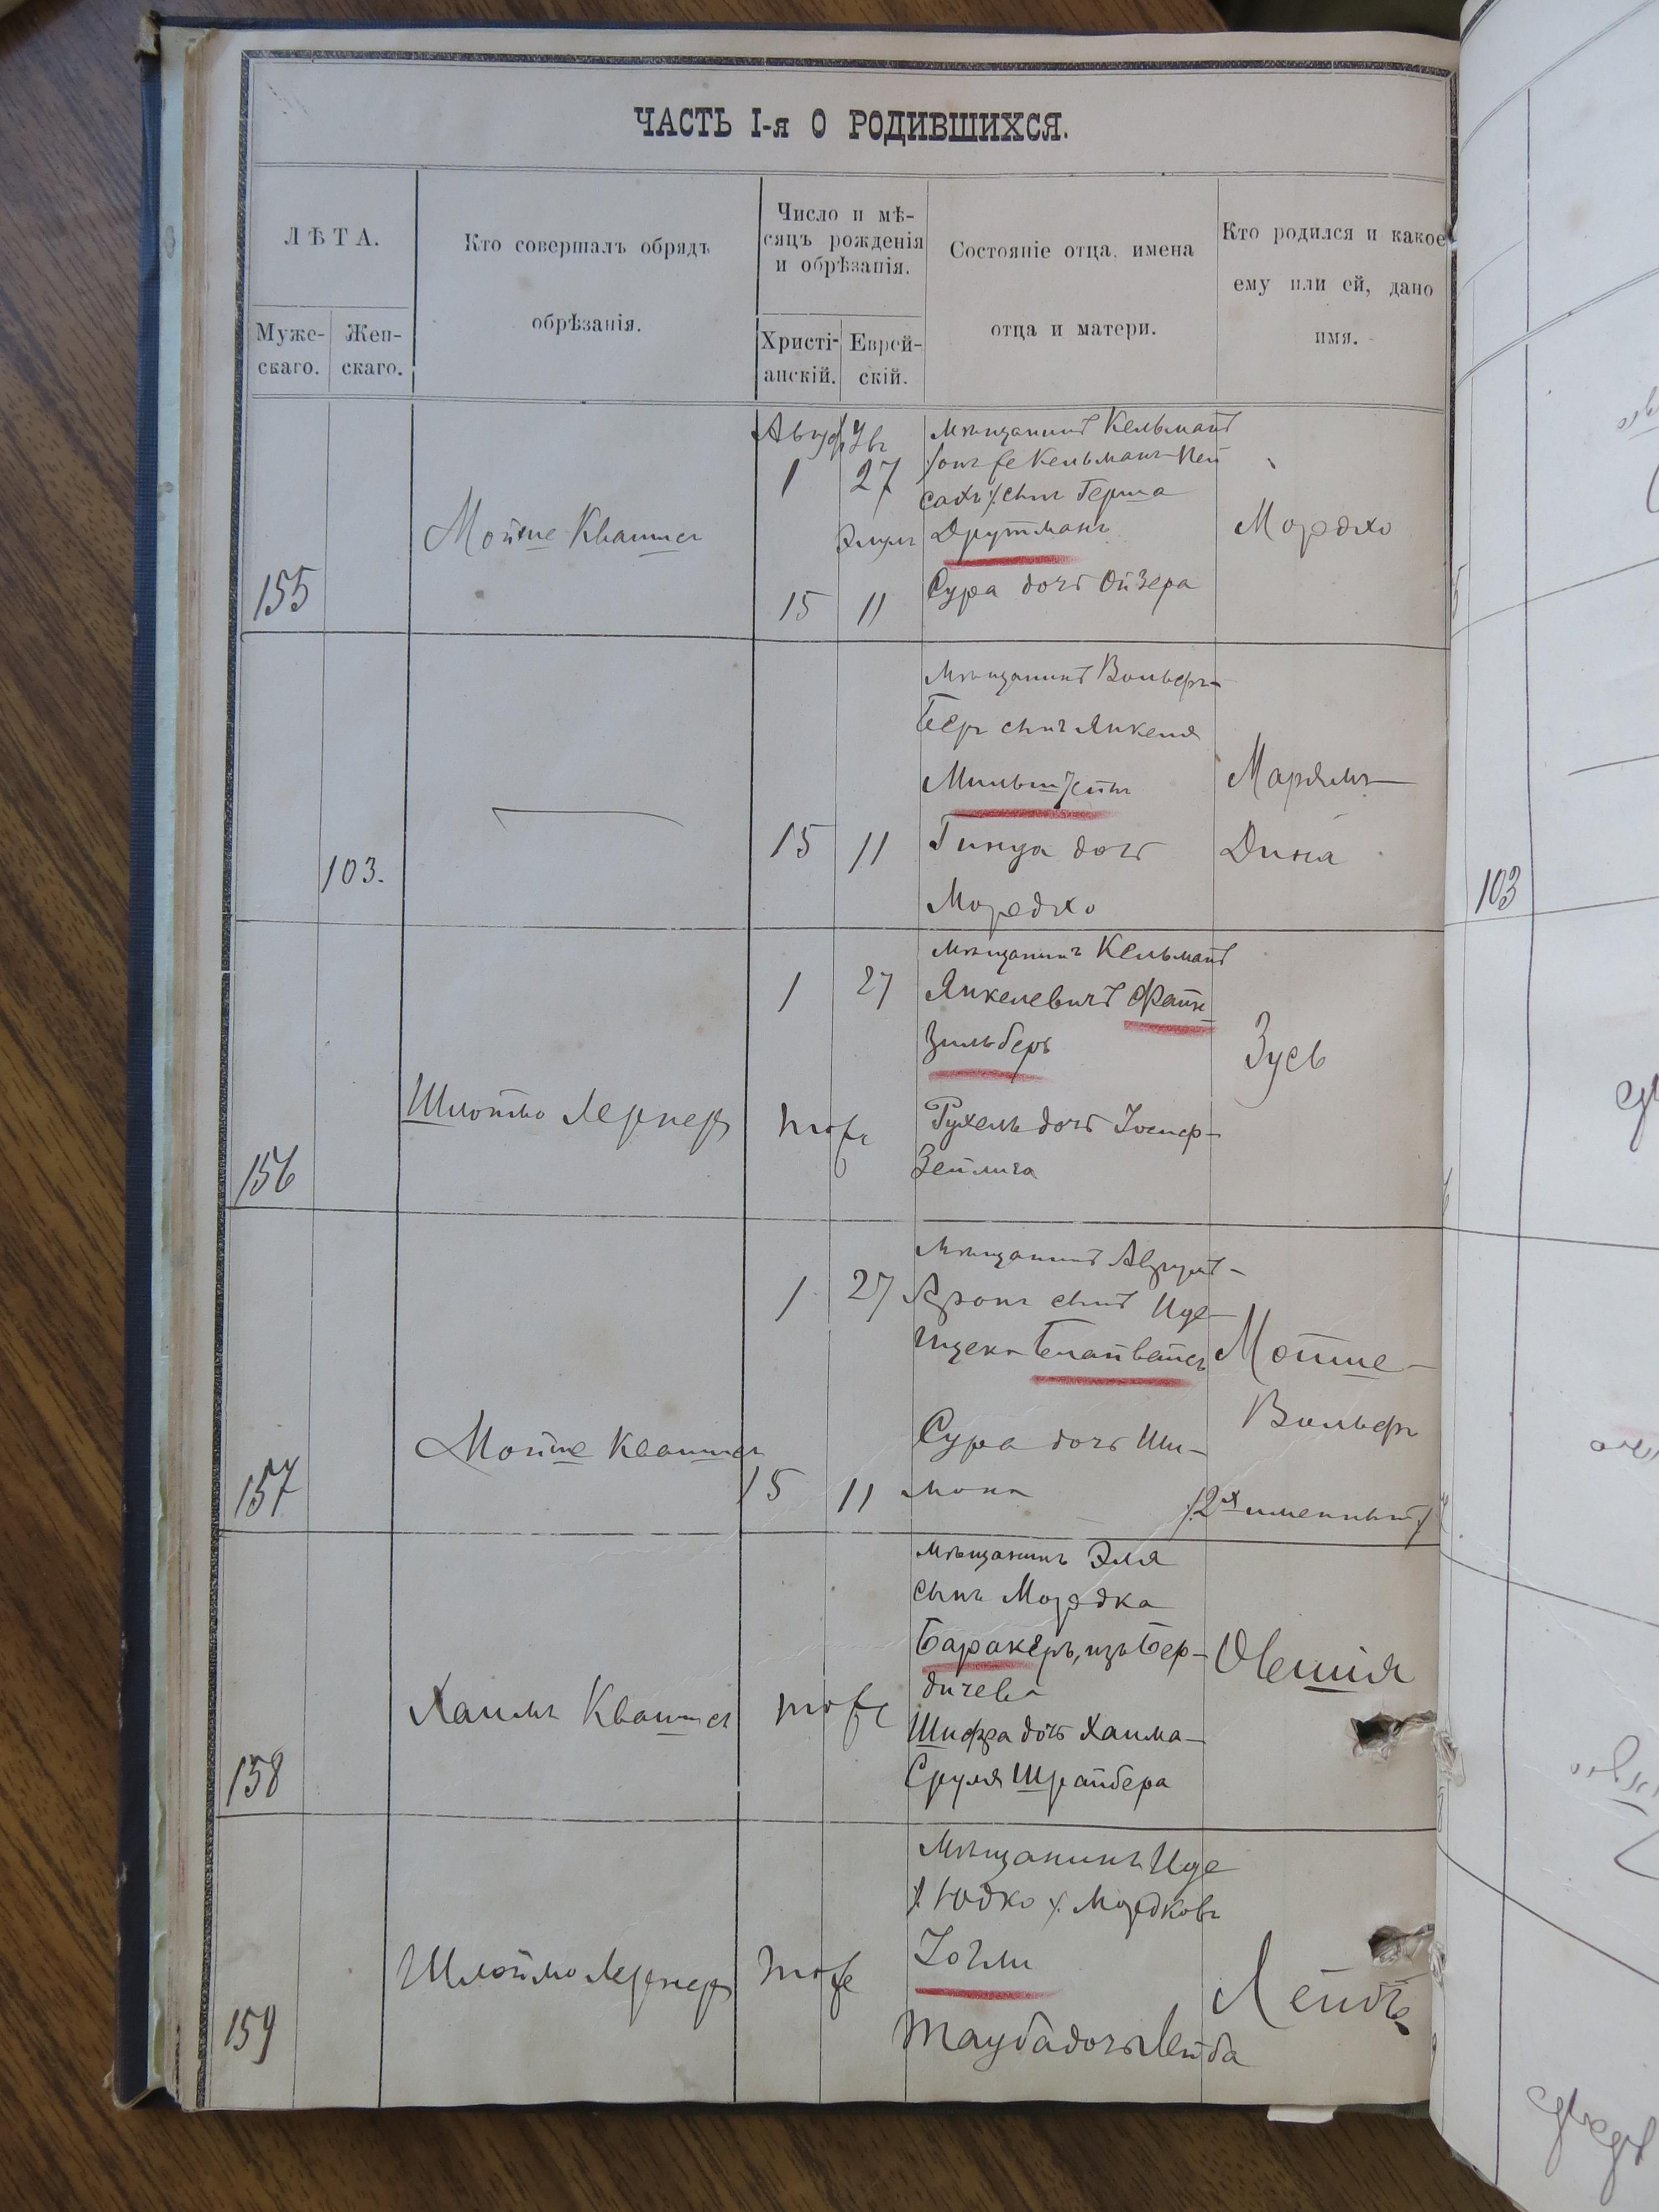 ЧАСТЬ I-я О РОДИВШИХСЯ.
ЛѢТА.
Муже-
скаго.
Жен-
скаго.
Кто совершалъ обрядъ
обрѣзанія.
Число и мѣ-
сяцъ рожденія
и обрѣзанія.
Христі-
анскій.
Еврей-
скій.
Состояніе отца, имена
отца и матери.
Кто родился и какое
ему или ей, дано
имя.
155
Мойше Квашис
1
27
15
Элулъ
11
Мѣщанинъ Кельманъ
онъ же Кельманъ-Пей
сахъ сынъ Герша
Друтманъ
Сура дочь Ойзера
Мордхо
103.
15
11
Мѣщанинъ Вольфъ-
Беръ сынъ Янкеля
Мильштейнъ
дочь
Мордхо
Марьямъ-
Дина
103
156
Шлоймо Лернеръ
1
27
тоже
Мѣщанинъ Кельманъ
Янкелевичъ Файн-
зильберъ
Рухель дочь Іосиф-
Зейлига
Зусь
157
Мойше Квашис
1
27
15
11
Мѣщанинъ
Аронъ сынъ Иде-
Блайвайсъ
Сура дочь Ши-
мона
Мойше-
Вольфъ
2х именный
158
Хаимъ Квашис
тоже
Мѣщанинъ Эля
сынъ Мордка
Баракеръ, изъ Бер-
дичева
Шифра дочь Хаима-
Сруля Шрайбера
Овшия
159
Шлоймо Лернеръ
тоже
Мѣщанинъ Иде
Юдко Мордковъ
Тауба дочь Лейба
Лейбъ